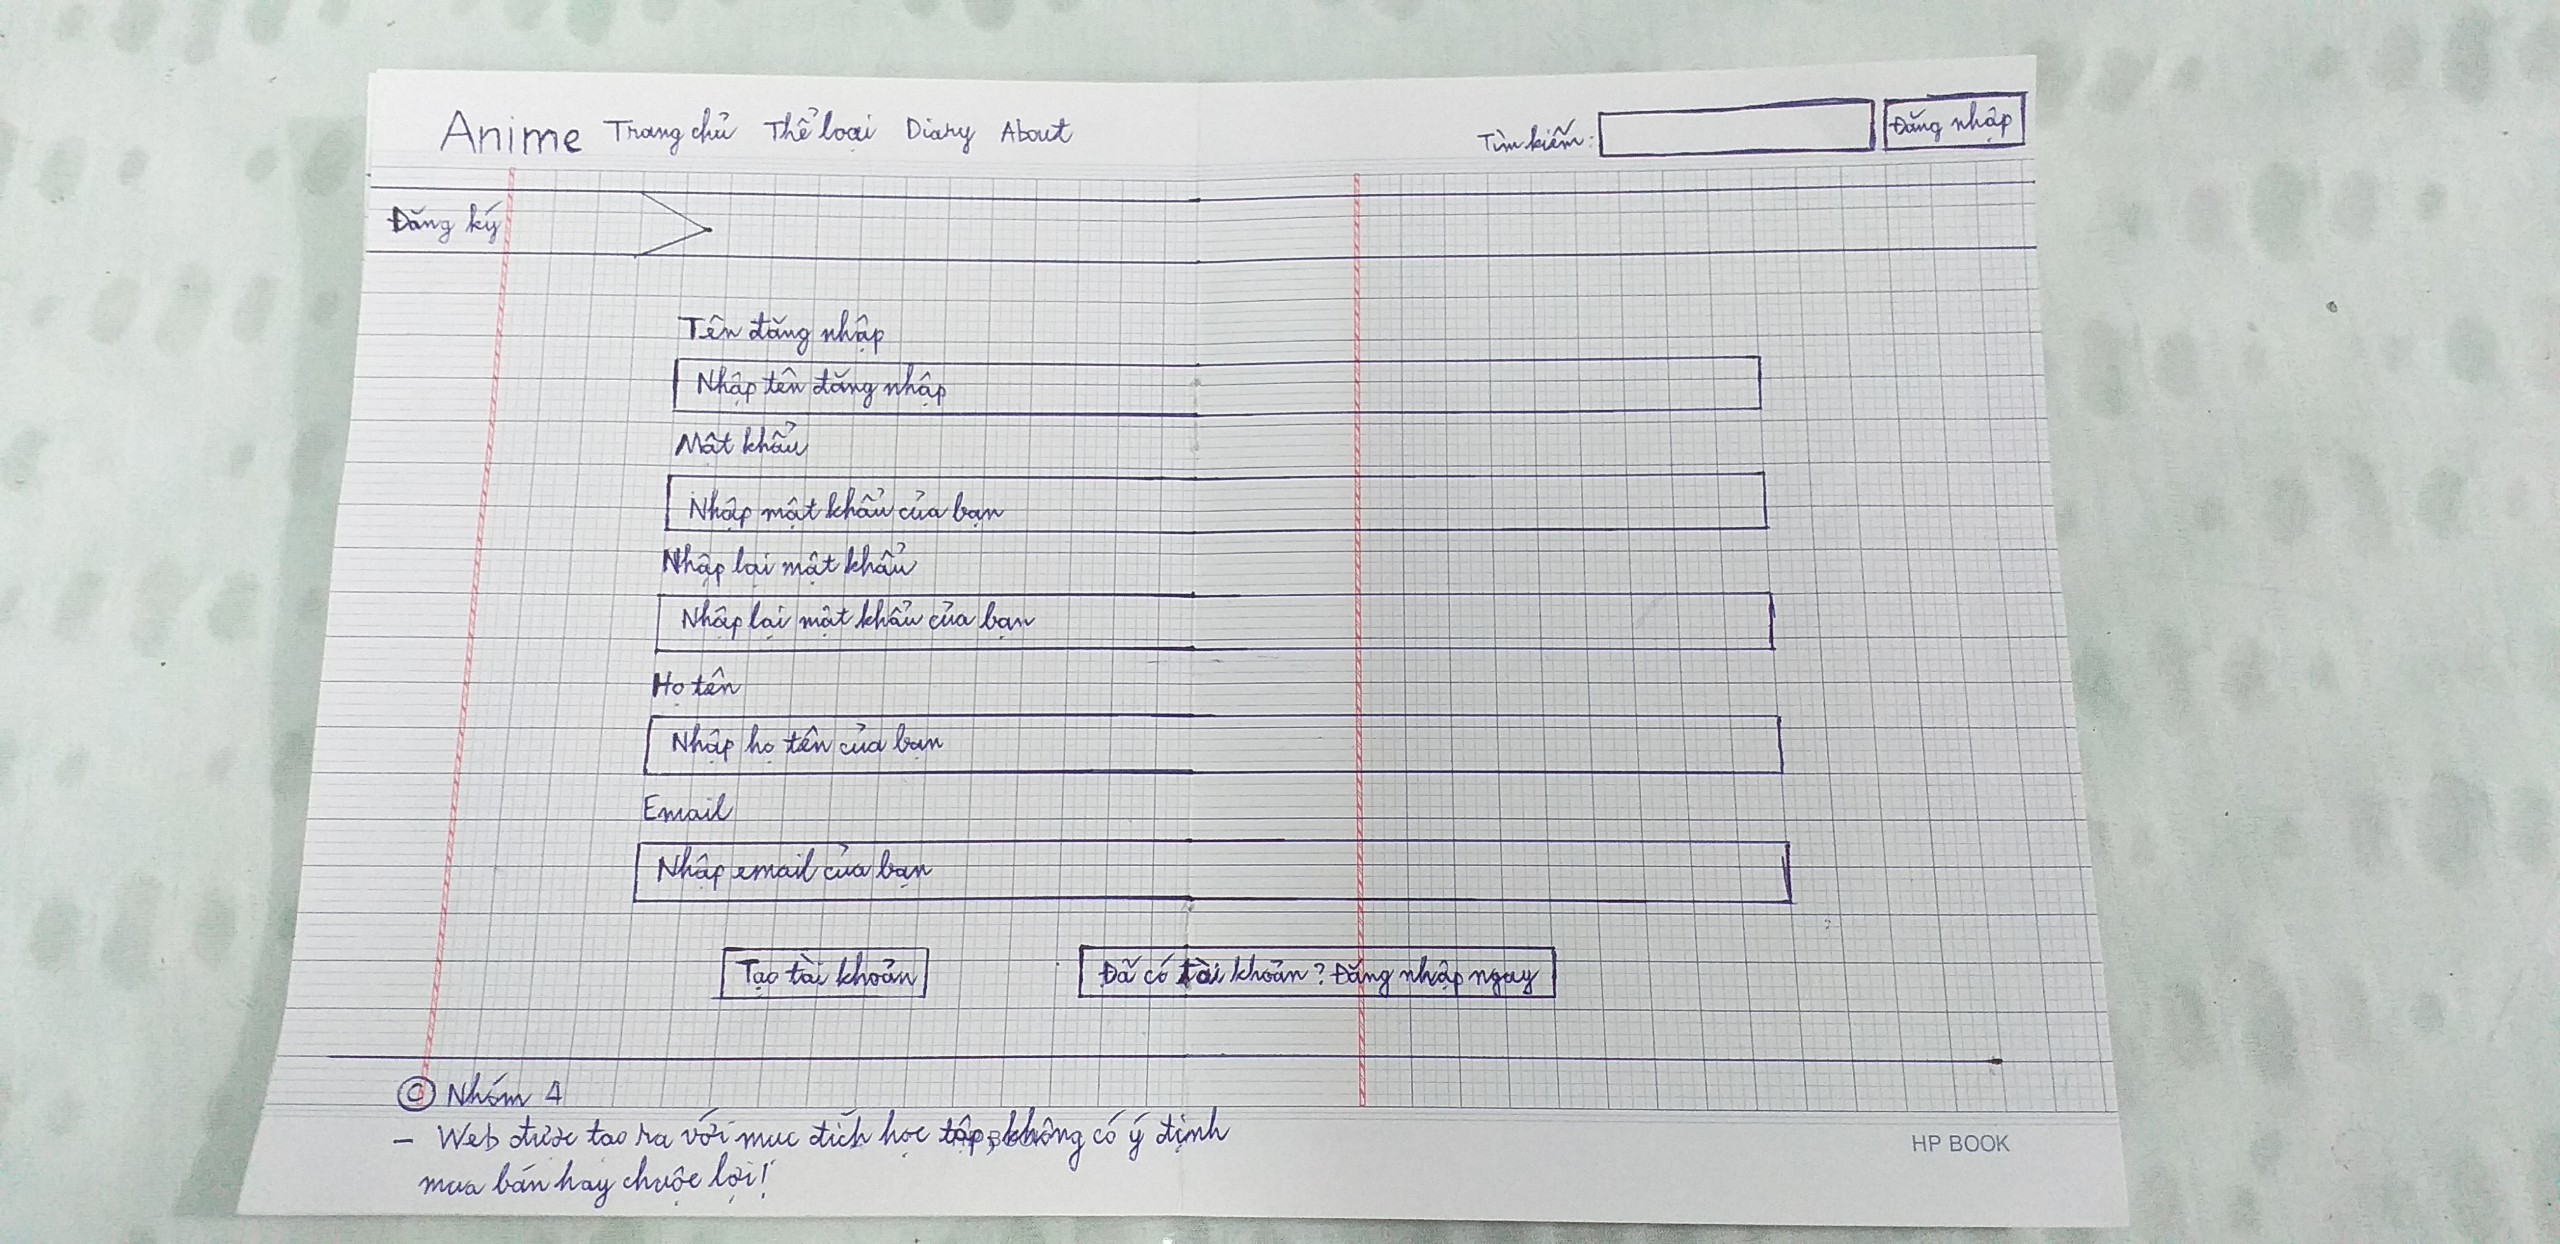 Anime Trang chủ Thể loại Diary About Tìm kiếm: Đăng nhập
Đăng ký
Tên đăng nhập
Nhập tên đăng nhập
Mật khẩu
Nhập mật khẩu của bạn
Nhập lại mật khẩu
Nhập lại mật khẩu của bạn
Họ tên
Nhập họ tên của bạn
Email
Nhập email của bạn
Tạo tài khoản Đã có tài khoản? Đăng nhập ngay
© Nhóm 4
- Web được tạo ra với mục đích học tập, không có ý định
mua bán hay chuộc lợi!
HP BOOK